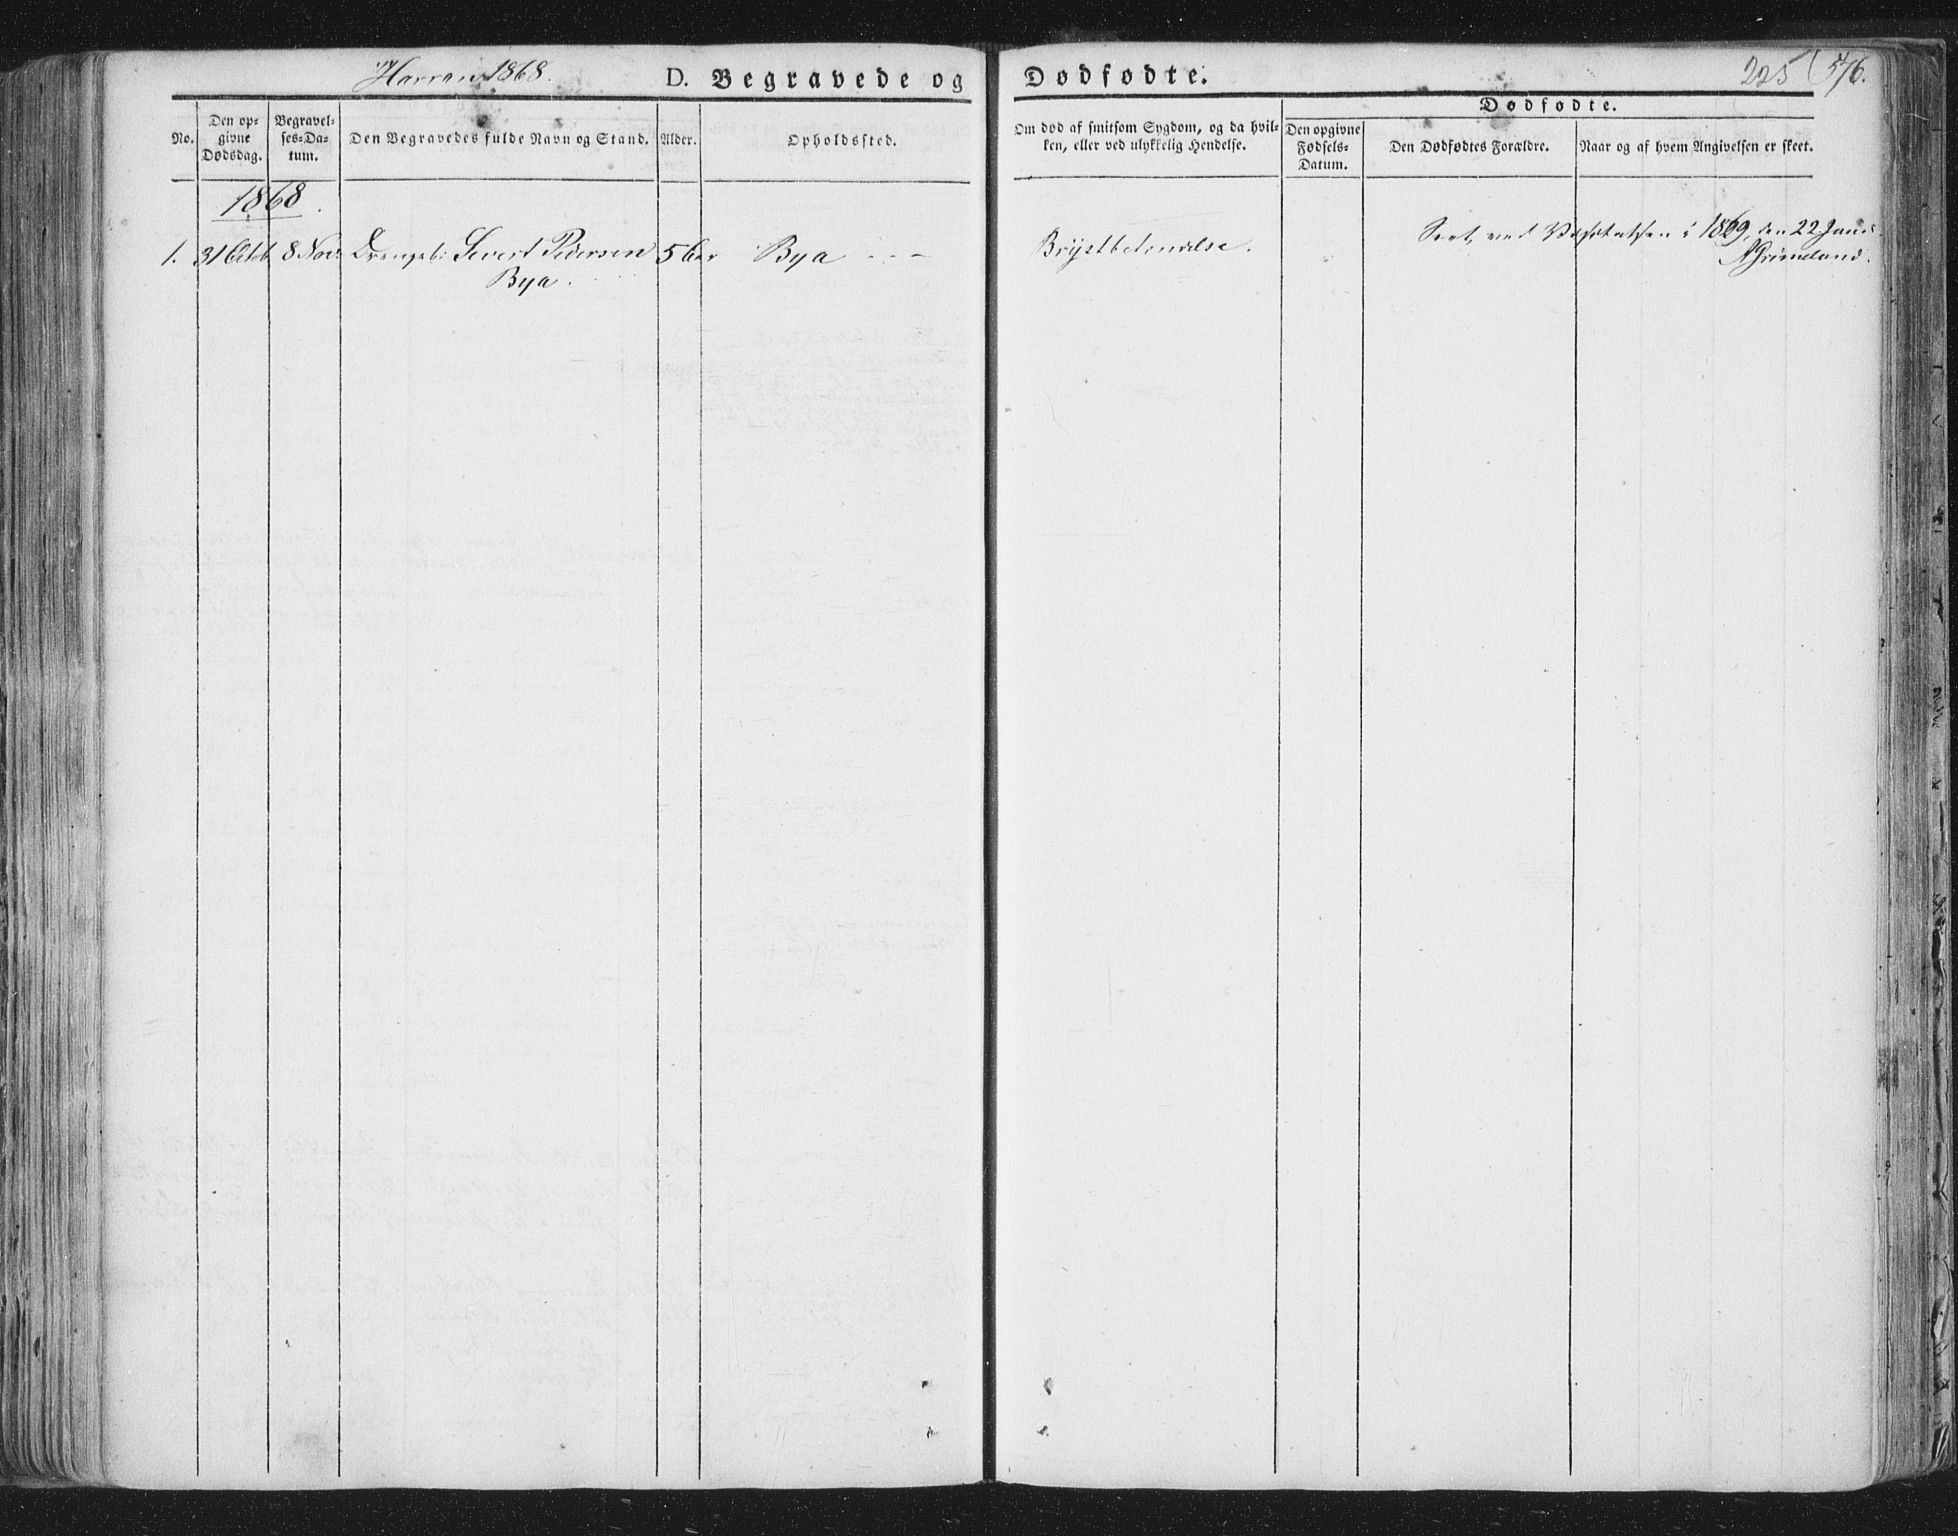 Harran 1868. D. Begravede og Dødfødte. 225 576.
Dødfødte.
No. Den opgivne Dødsdag. Begravelses-Datum. Den Begravedes fulde Navn og Stand. Alder. Opholdssted. Om død af smitsom Sygdom, og da hvilken, eller ved ulykkelig Hendelse. Den opgivne Fødsels-Datum. Den Dødfødtes Forældre. Naar og af hvem Angivelsen er skeet.
1868.
Seet ved Visitatsen i 1869, den 22 Januar
1. 31 Octob 8 Nov: Drengeb: Sivert Pedersen 5 6 Bya - - - Brystbetændelse. AGrimelund.
Bya.